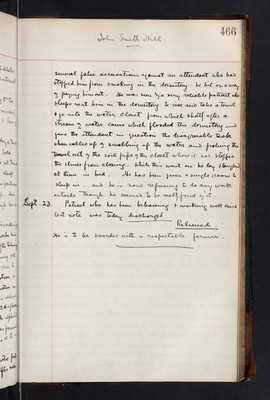 466
John Smith Hill
several false accusations against an attendant who had
stopped him from smoking in the dormitory he hit on a way
of paying him out. He was seen by a very reliable patient who
sleeps next him in the dormitory to rise and take a towel
& go into the water closet from which shortly after a
stream of water came which flooded the dormitory and
gave the attendant in question the disagreeable task
when called up of swabbing up the water and fishing the
towel out of the soil pipe of the closet where it had stopped
the sluice from closing. While this went on he lay & laughed
at them in bed. He has been given a single room to
sleep in and he is now refusing to do any work
outside though he seemed to be well fond of it.
Sept. 23. Patient who has been behaving & working well since
last note was today discharged
Relieved.
He is to be boarded with a respectable farmer.